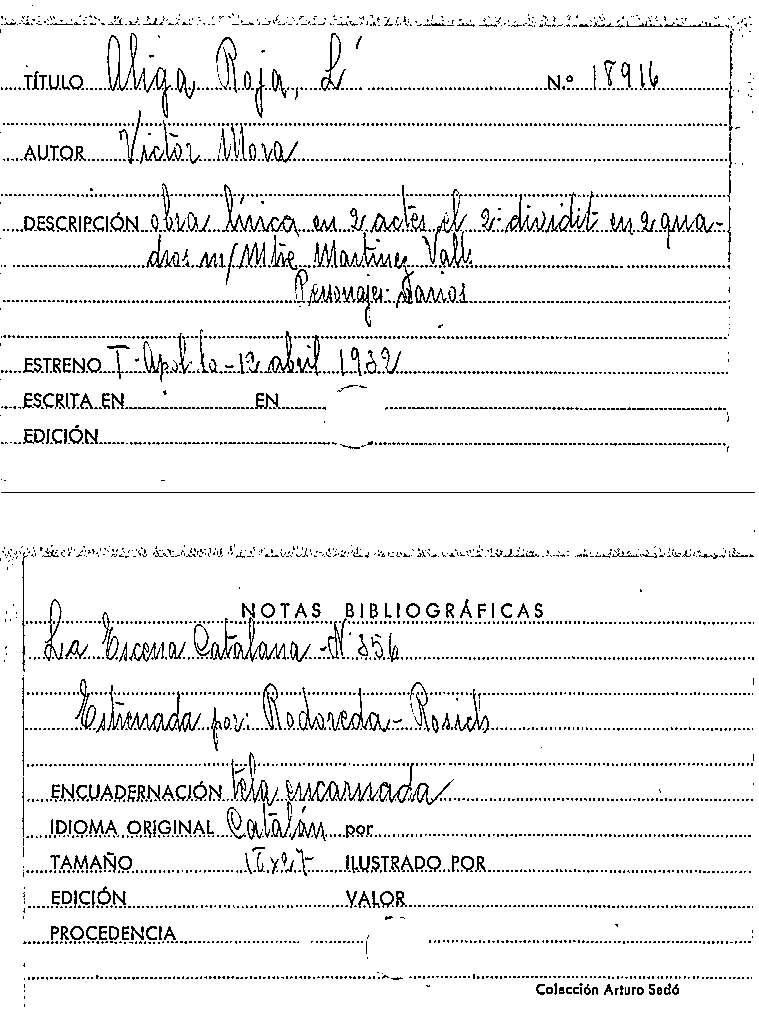 TÍTULO Aliga Roja, L' N.º 18916
AUTOR Victor Mora
DESCRIPCIÓN obra lírica en 2 actes, el 2º dividit en 2 qua-
dros m/ Mtre Martinez Valls
Personajes: Varios
ESTRENO T. Apol·lo - 12 abril 1932
ESCRITA EN EN
EDICIÓN
NOTAS BIBLIOGRÁFICAS
La Escena Catalana - Nº 356
Estrenada por: Rodoreda - Rosich
ENCUADERNACIÓN tela encarnada
IDIOMA ORIGINAL Catalán por
TAMAÑO ILUSTRADO POR
EDICIÓN VALOR
PROCEDENCIA
Colección Arturo Sedó